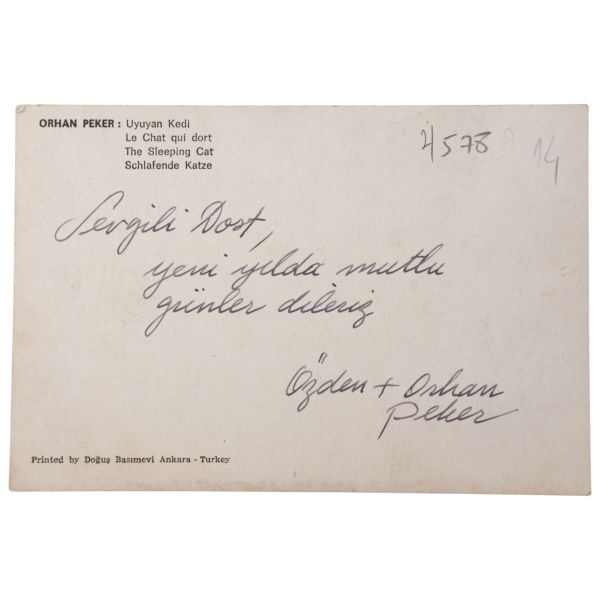 ORHAN PEKER : Uyuyan Kedi
Le Chat qui dort
The Sleeping Cat
Schlafende Katze
4578
14
Sevgili Dost,
yeni yılda mutlu
günler dileriz
Özden + Orhan
Peker
Printed by Doğuş Basımevi Ankara - Turkey